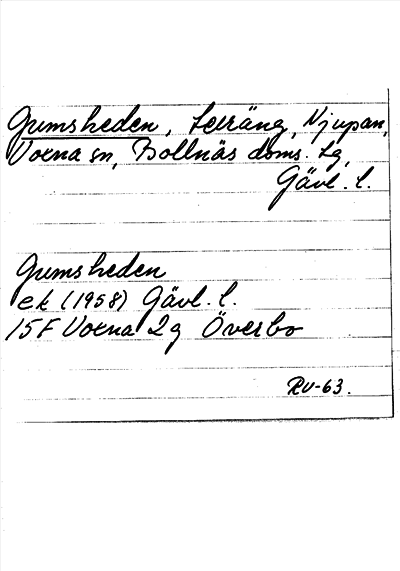 Gumsheden, Leträng, Njupan,
Voxna sn, Bollnäs doms. Lg,
Gävl. l.
Gumsheden
ek (1958) Gävl. l.
15F Voxna 2g Överbo
RV-63.